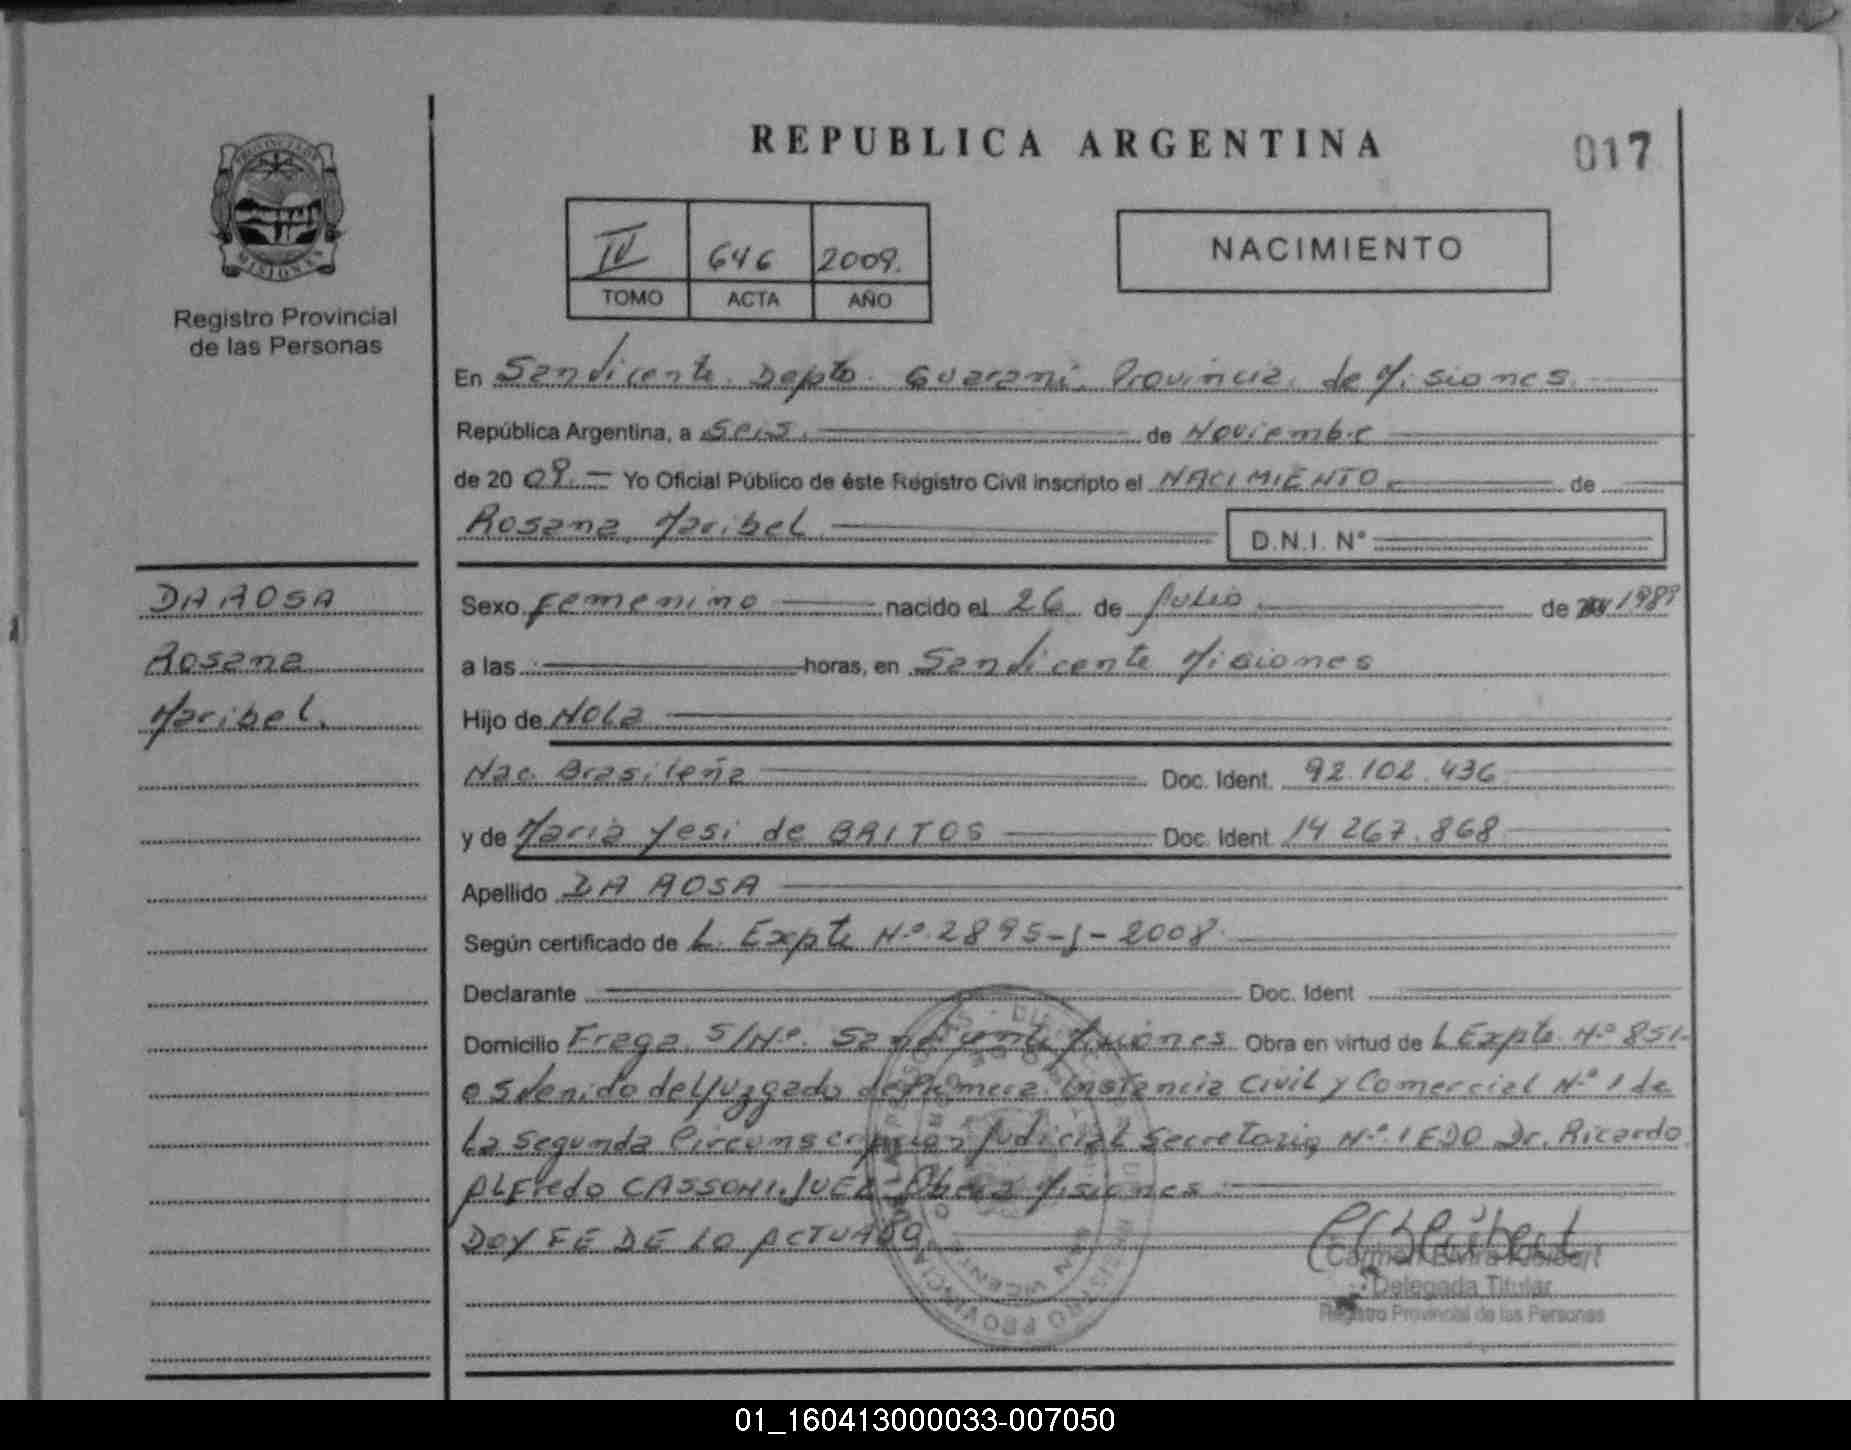 REPUBLICA ARGENTINA
017
PROVINCIA DE
MISIONES
Registro Provincial
de las Personas
IV 646 2009.
TOMO ACTA AÑO
NACIMIENTO
En San Vicente Depto. Guarani. Provincia de Misiones.
República Argentina, a Seis. de Noviembre
de 20 09. Yo Oficial Público de éste Registro Civil inscripto el NACIMIENTO. de
Rosana Maribel
D.N.I. N°
DA ROSA
Rosana
Maribel.
Sexo femenino nacido el 26 de Julio de 1989
a las horas, en San Vicente Misiones
Hijo de Nola
Nac. Brasileña Doc. Ident. 92.102.436
y de Maria Yesi de BRITOS Doc. Ident 14 267.868
Apellido DA ROSA
Según certificado de L. Expte N° 2895-J-2008
Declarante Doc. Ident
Domicilio Fraga S/N°. San Vicente Misiones Obra en virtud de L Expte. N° 851-
del Juzgado de Primera Instancia Civil y Comercial N° 1 de
La Segunda Circunscripcion Judicial Secretaria N° 1 Dr. Ricardo
ALFredo CASSONI. JUEZ Obera Misiones
DOY FE DE LO ACTUADO
REGISTRO PROVINCIAL DE LAS PERSONAS
SAN VICENTE
Carmen Elvira
Delegada Titular
Registro Provincial de las Personas
01_160413000033-007050